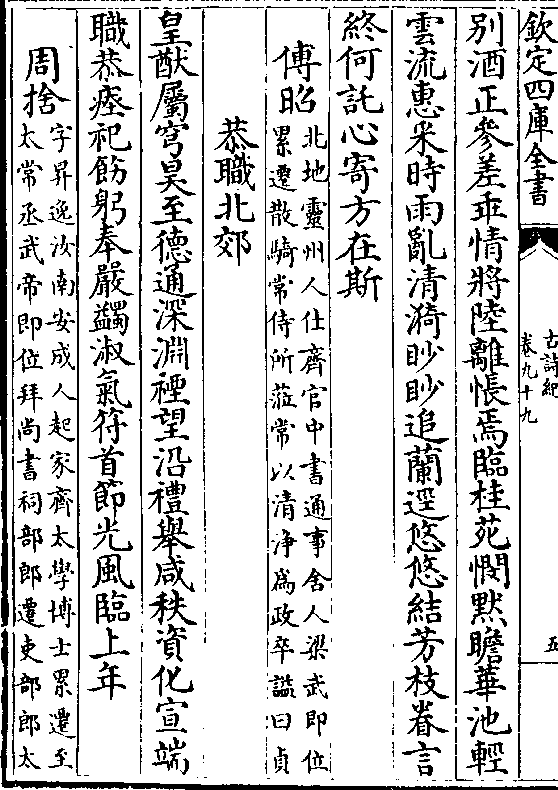 欽定四庫全書
古詩紀
卷九十九
五
別酒正參差乖情將陸離悵焉臨桂苑憫默瞻華池輕
雲流惠采時雨亂清漪眇眇追蘭逕悠悠結芳枝眷言
終何託心寄方在斯
傅昭
北地靈州人仕齊官中書通事舍人梁武即位
累遷散騎常侍所蒞常以清淨為政卒諡曰貞
恭職北郊
皇猷屬穹昊至德通深淵禋望沿禮舉咸秩資化宣端
職恭瘞祀飭躬奉嚴蠲淑氣符首節光風臨上年
周捨
字昇逸汝南安成人起家齊太學博士累遷至
太常丞武帝即位拜尚書祠部郎遷吏部郎太